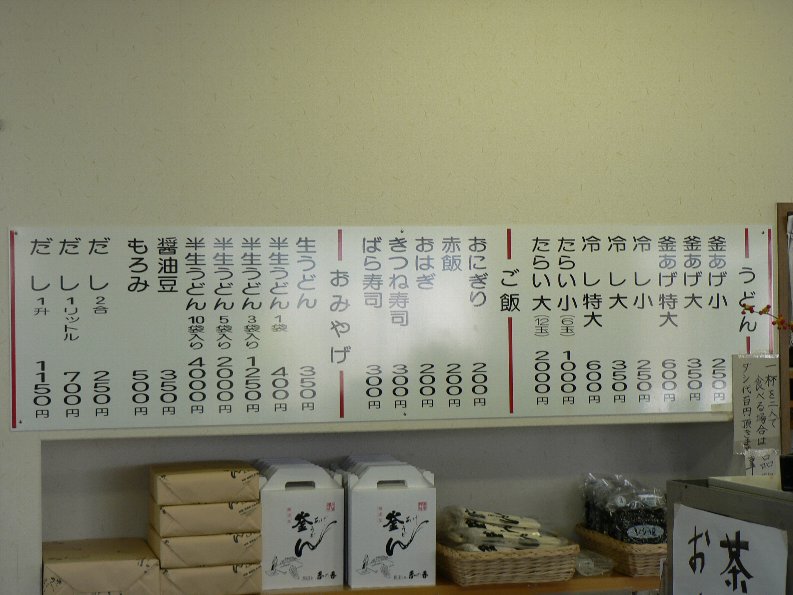 うどん
釜あげ小 250円
釜あげ大 350円
釜あげ特大 600円
冷し小 250円
冷し大 350円
冷し特大 600円
たらい小(6玉) 1000円
たらい大(12玉) 2000円
ご飯
おにぎり 200円
赤飯 200円
おはぎ 200円
きつね寿司 300円
ばら寿司 300円
おみやげ
生うどん 350円
半生うどん1袋 400円
半生うどん3袋入り 1250円
半生うどん5袋入り 2000円
半生うどん10袋入り 4000円
醤油豆 350円
もろみ 500円
だし2合 250円
だし1リットル 700円
だし1升 1150円
一杯を二人で
食べる場合は
ダシ代百円頂きま
釜あげうどん
釜あげうどん
お茶